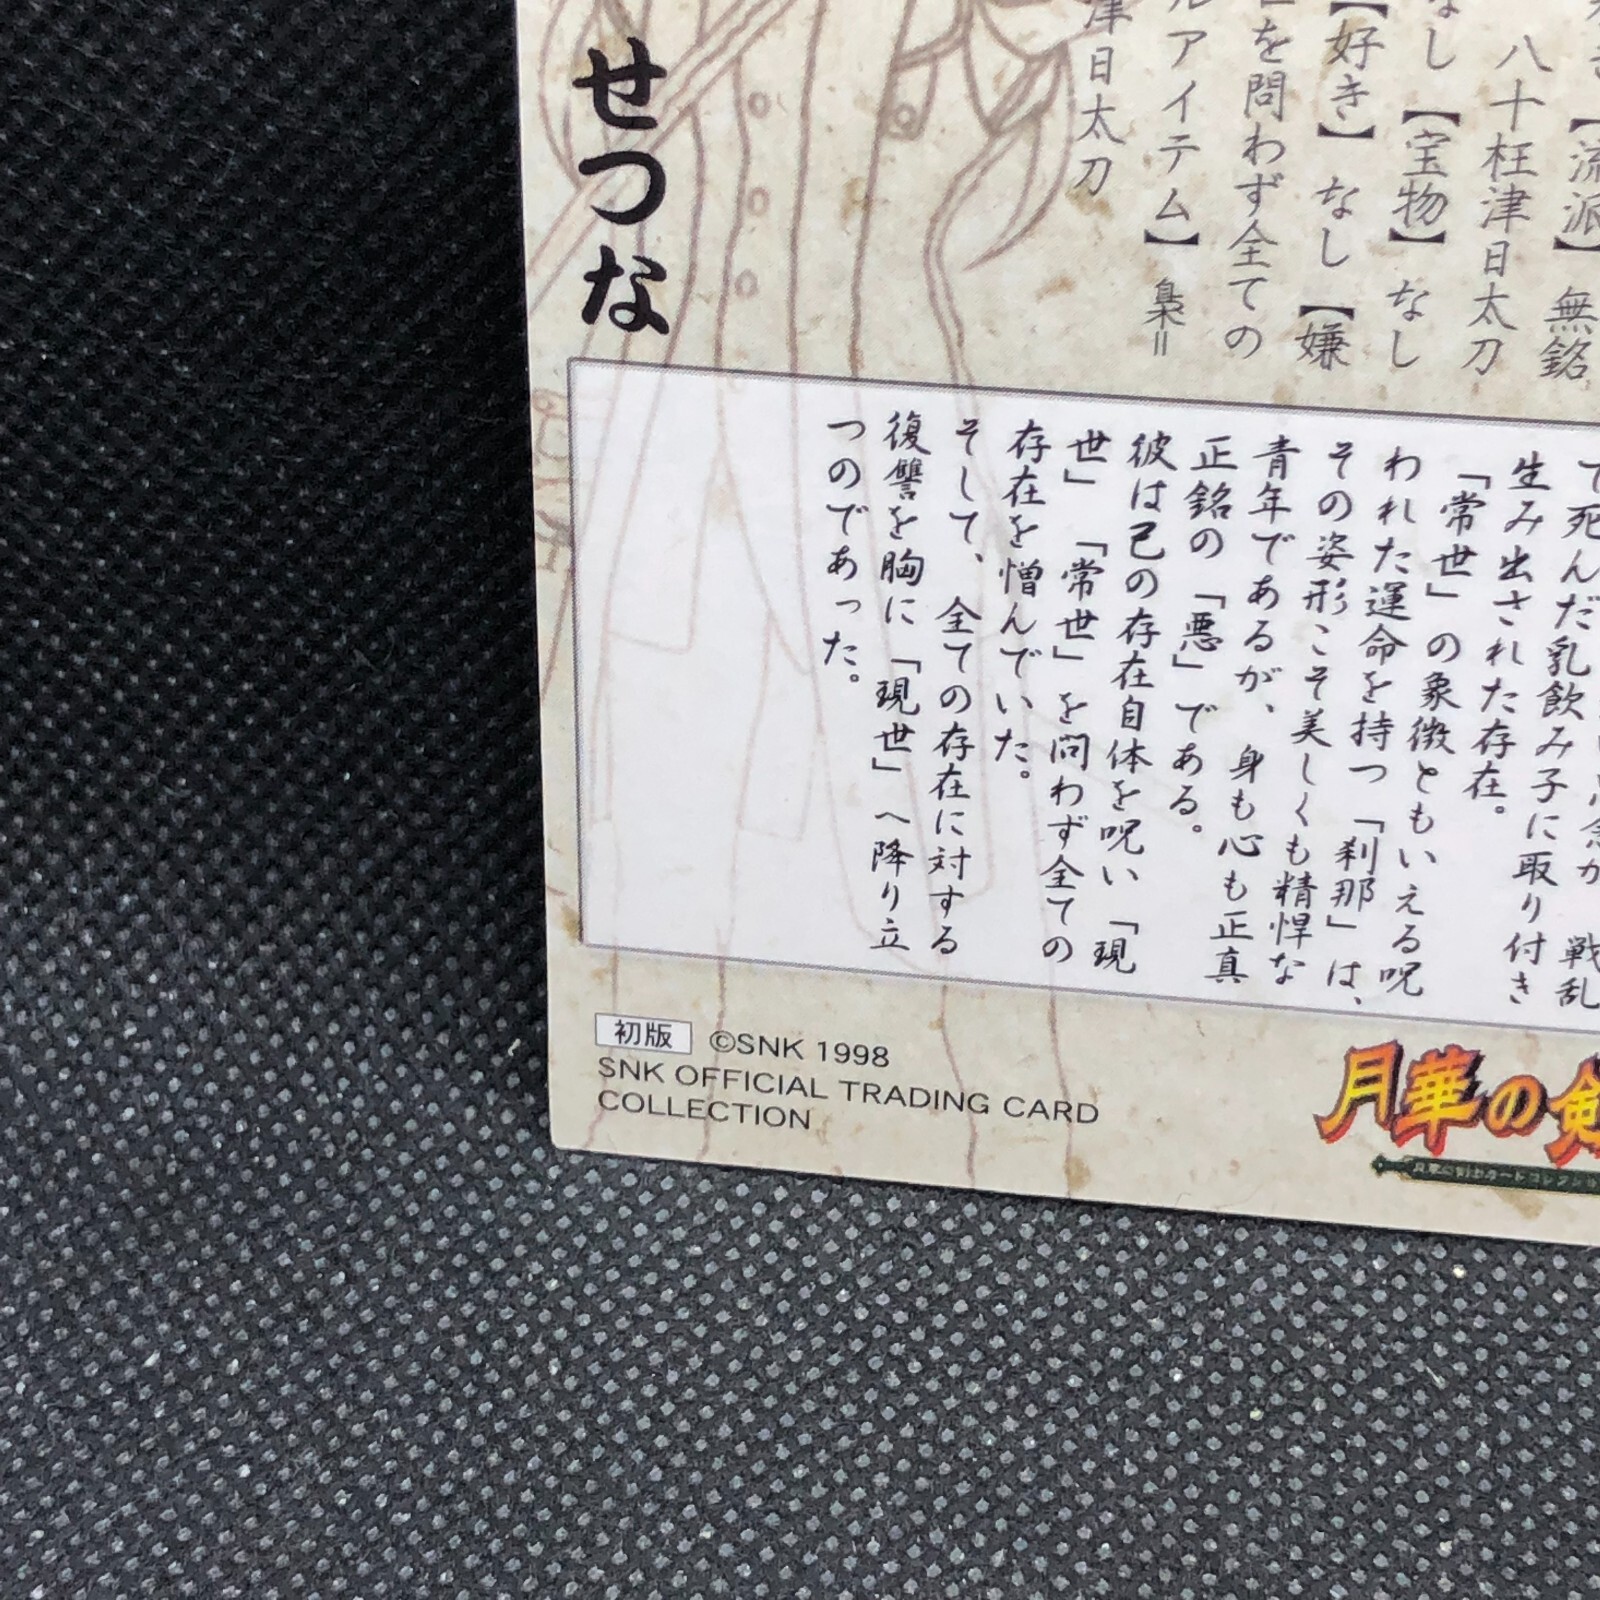 【流派】無銘
八十枉津日太刀
なし【宝物】なし
【好き】なし【嫌
を問わず全ての
ルアイテム】梟=
津日太刀
せつな
て死んだ乳飲み子に取り付き
生み出された存在。
「常世」の象徴ともいえる呪
われた運命を持つ「刹那」は、
その姿形こそ美しくも精悍な
青年であるが、身も心も正真
正銘の「悪」である。
彼は己の存在自体を呪い「現
世」「常世」を問わず全ての
存在を憎んでいた。
そして、全ての存在に対する
復讐を胸に「現世」へ降り立
つのであった。
初版 ©SNK 1998
SNK OFFICIAL TRADING CARD
COLLECTION
月華の剣